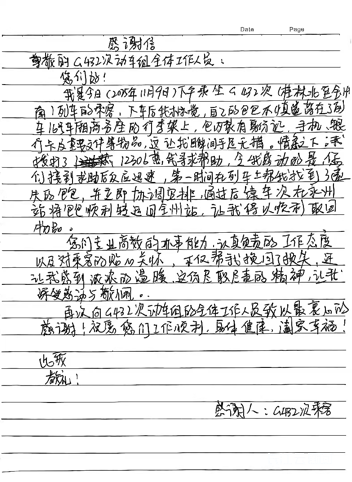 Date Page
感谢信
尊敬的G432次动车组全体工作人员:
您们好!
我是今日(2025年11月9日)下午乘坐G432次(桂林北至全州
南)列车的乘客,下车后我才发觉,自己的包包不慎遗落在了列
车16号车厢商务座的行李架上,包内装有身份证、手机、银
行卡及重要证件等物品,这让我瞬间手足无措。情急下,我
拨打了12306客服寻求帮助,令我感动的是,您
们接到求助后反应迅速,第一时间在列车上帮我找到了遗
失的包包,并立即协调安排,通过后续车次在永州
站将包包顺利转运回全州站,让我得以顺利取回
物品。
您们专业高效的办事能力、认真负责的工作态度
以及对乘客的贴心关怀,不仅帮我挽回了损失,还
让我感到浓浓的温暖,这份尽职尽责的精神,让我
深受感动与敬佩。
再次向G432次动车组的全体工作人员致以最衷心的
感谢!祝愿您们工作顺利,身体健康,阖家幸福!
此致
敬礼!
感谢人:G432次乘客